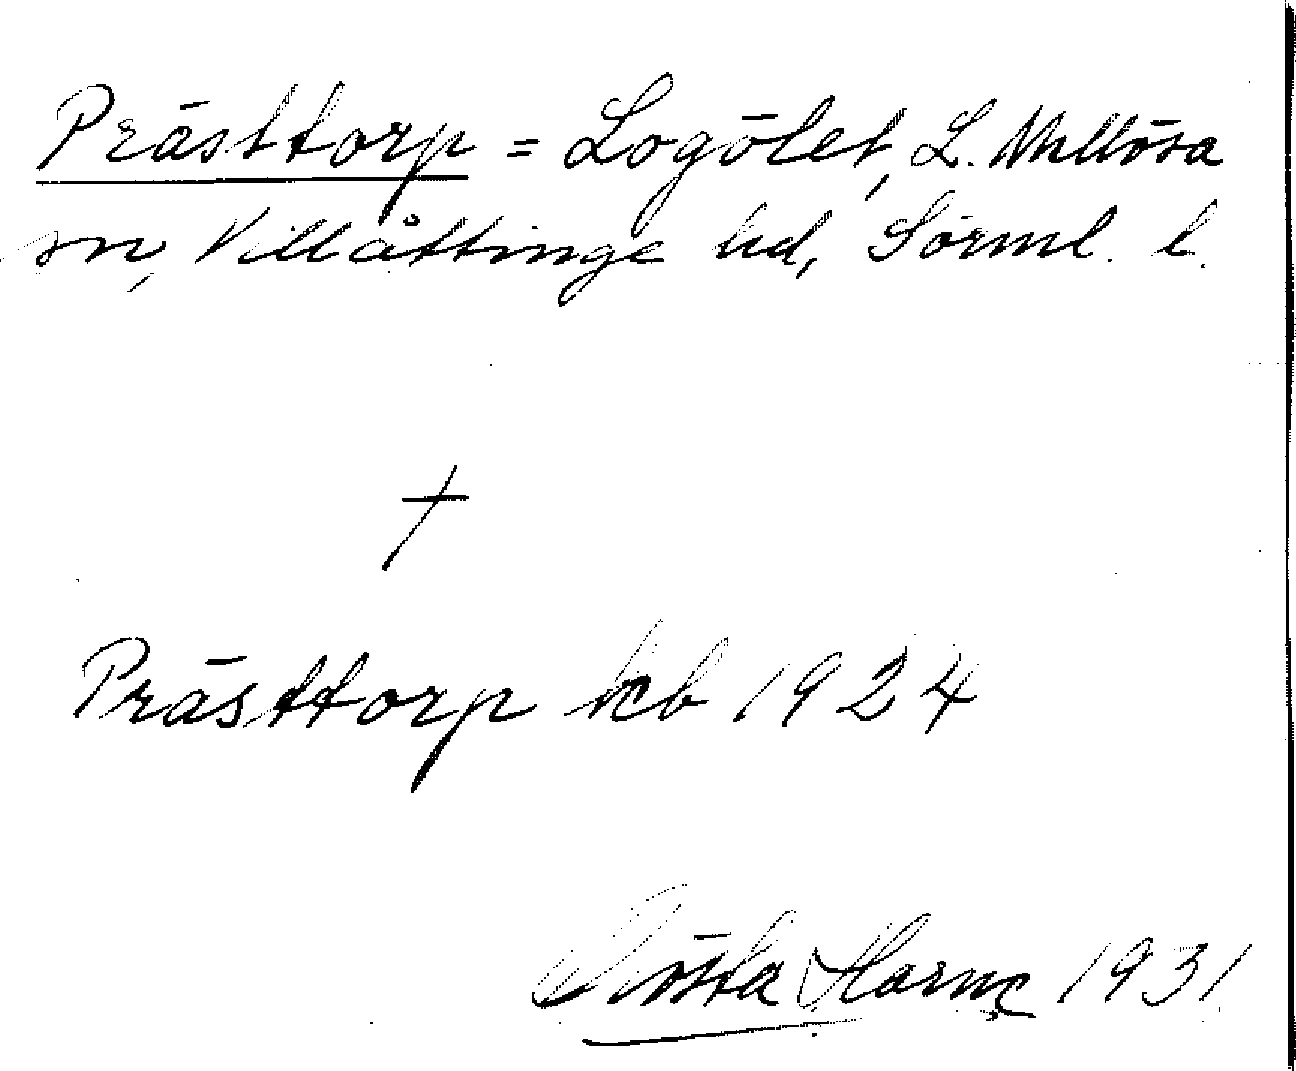 Prästtorp = Logölet, L. Mellösa
sn, Villåttinge hd, Sörml. l.
†
Prästtorp kb 1924
Gösta Harne 1931